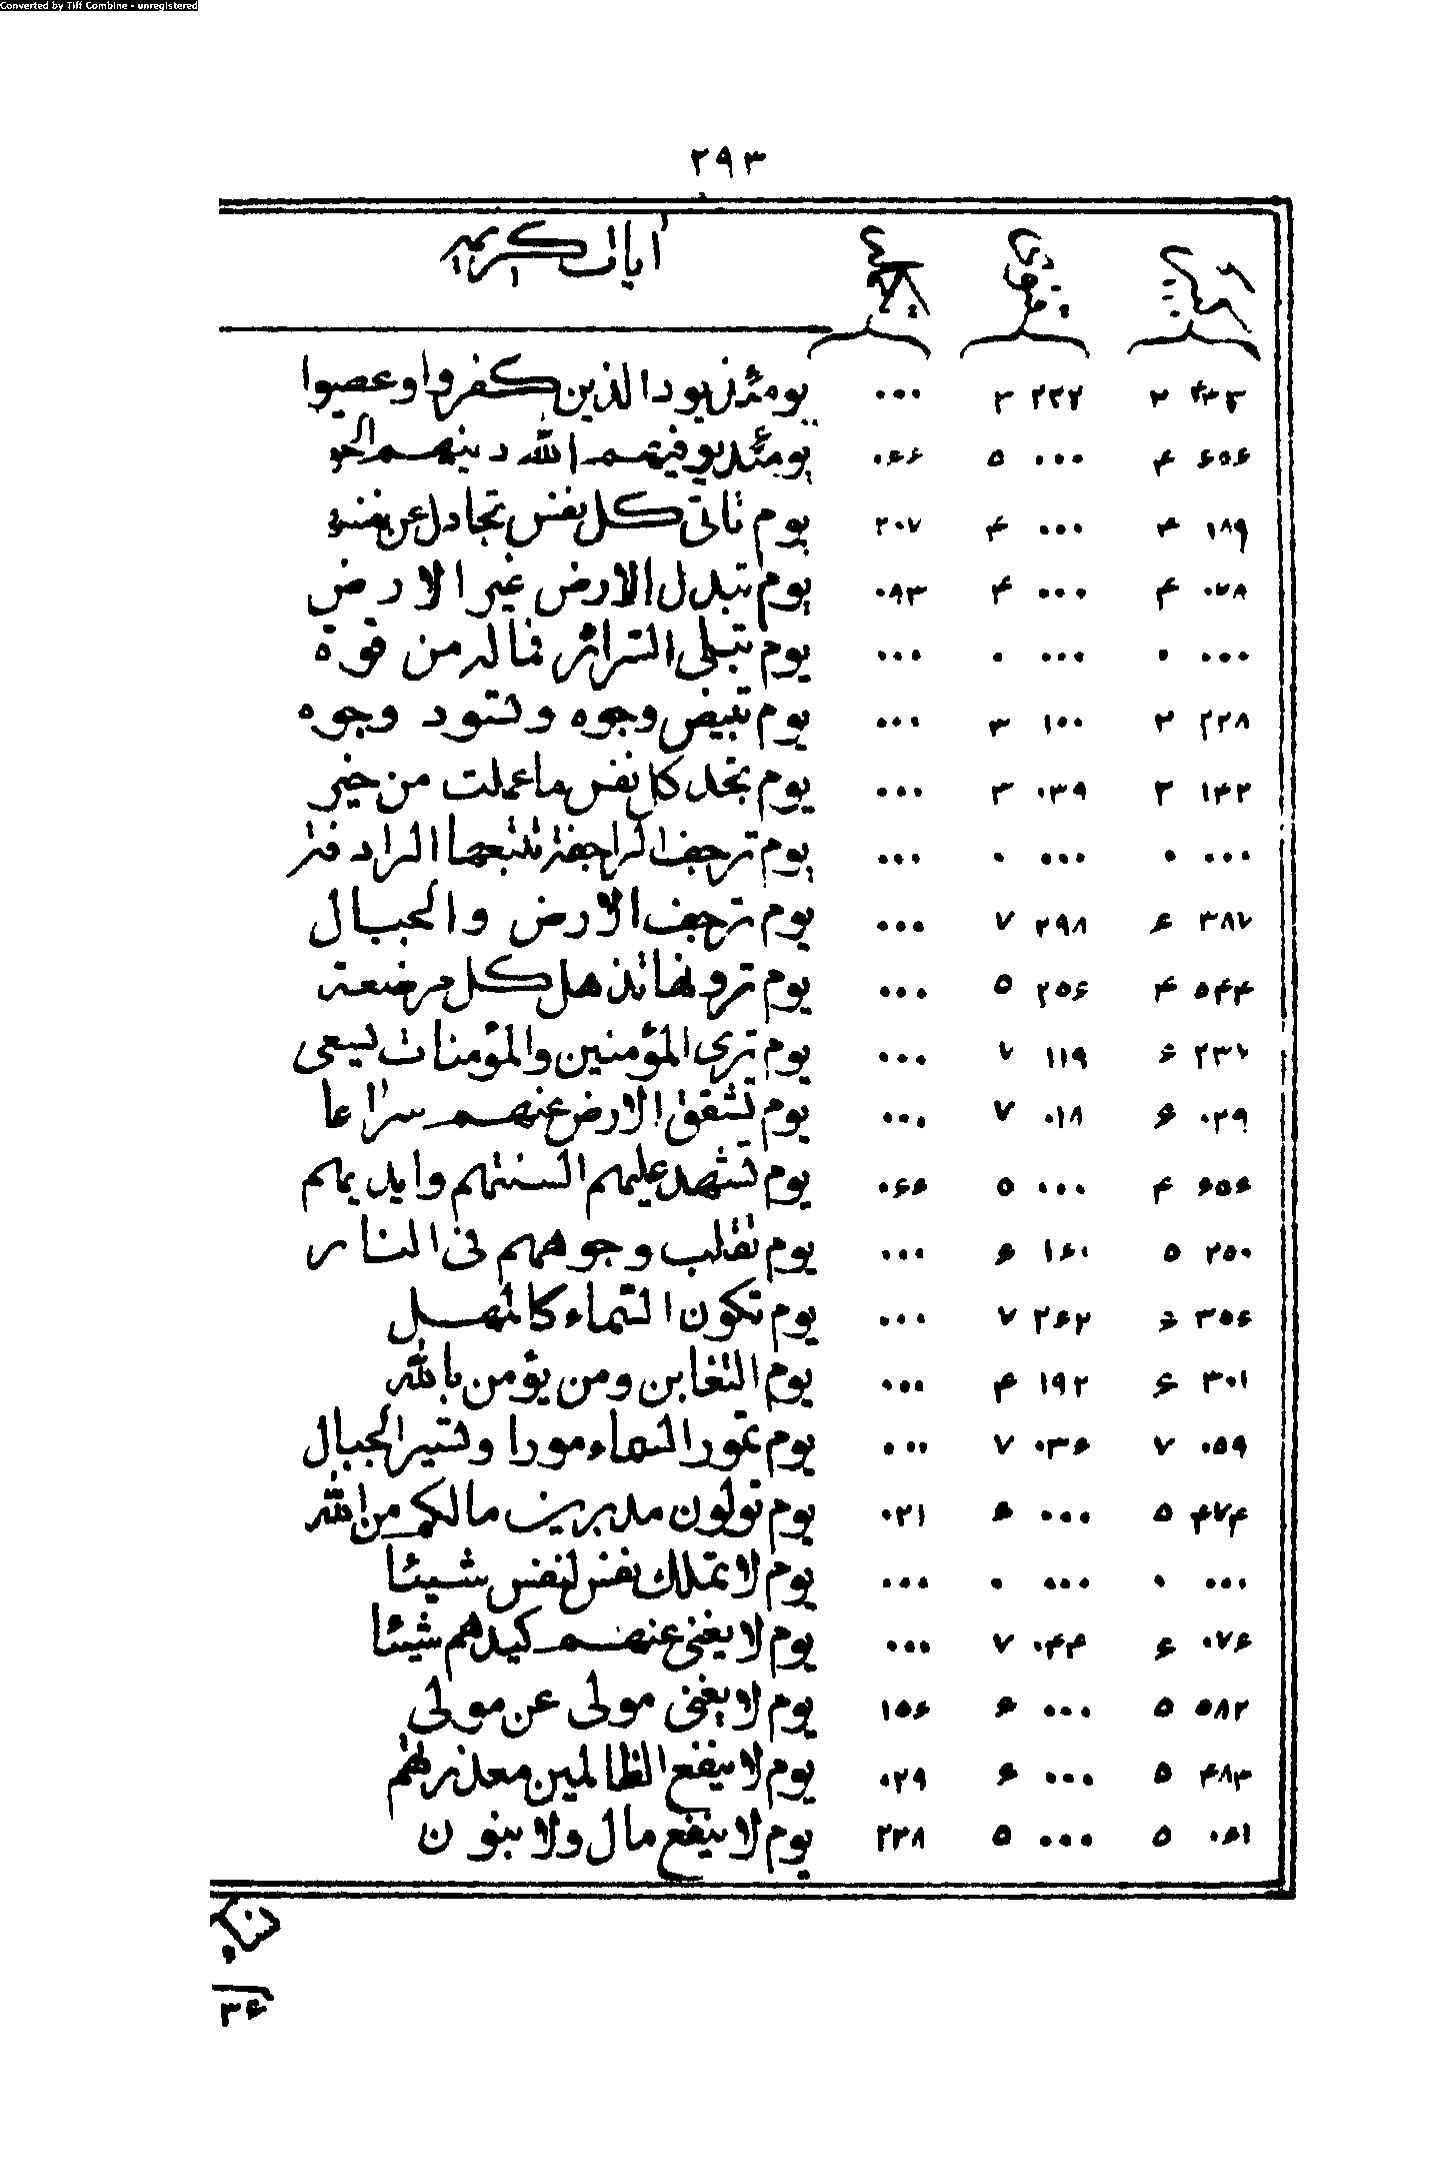 Converted by Tiff Combine - unregistered
۲۹۳
آیات کریمه
۴۳۳ ۲ ۲۳۲ ۳ ۰۰۰ یومئذ یود الذین کفروا وعصوا
۶۵۶ ۴ ۰۰۰ ۵ ۰۶۶ یومئذ یوفیهم الله دینهم الحق
۱۸۹ ۴ ۰۰۰ ۴ ۲۰۷ یوم تاتی کل نفس تجادل عن نفسه
۰۷۸ ۴ ۰۰۰ ۴ ۰۹۳ یوم تبدل الارض غیر الارض
۰۰۰ ۰ ۰۰۰ ۰ ۰۰۰ یوم تبلی السرائر فماله من قوة
۲۲۸ ۲ ۱۰۰ ۳ ۰۰۰ یوم تبیض وجوه وتسود وجوه
۱۴۲ ۲ ۰۳۹ ۳ ۰۰۰ یوم تجد کل نفس ما عملت من خیر
۰۰۰ ۰ ۰۰۰ ۰ ۰۰۰ یوم ترجف الراجفة تتبعها الرادفة
۳۸۷ ۶ ۲۹۸ ۷ ۰۰۰ یوم ترجف الارض والجبال
۵۴۴ ۴ ۲۵۶ ۵ ۰۰۰ یوم ترونها تذهل کل مرضعة
۲۳۷ ۶ ۱۱۹ ۷ ۰۰۰ یوم تری المؤمنین والمؤمنات یسعی
۰۲۹ ۶ ۰۱۸ ۷ ۰۰۰ یوم تشقق الارض عنهم سراعا
۶۵۶ ۴ ۰۰۰ ۵ ۰۶۶ یوم تشهد علیهم السنتهم وایدیهم
۲۵۰ ۵ ۱۶۰ ۶ ۰۰۰ یوم تقلب وجوههم فی النار
۳۵۶ ۶ ۲۶۲ ۷ ۰۰۰ یوم تکون السماء کالمهل
۳۰۱ ۶ ۱۹۲ ۴ ۰۰۰ یوم التغابن ومن یؤمن بالله
۰۵۹ ۷ ۰۳۶ ۷ ۰۰۰ یوم تمور السماء مورا وتسیر الجبال
۴۷۴ ۵ ۰۰۰ ۶ ۰۲۱ یوم تولون مدبرین مالکم من الله
۰۰۰ ۰ ۰۰۰ ۰ ۰۰۰ یوم لا تملک نفس لنفس شیئا
۰۷۶ ۶ ۰۴۴ ۷ ۰۰۰ یوم لا یغنی عنهم کیدهم شیئا
۵۸۲ ۵ ۰۰۰ ۶ ۱۵۶ یوم لا یغنی مولی عن مولی
۴۸۳ ۵ ۰۰۰ ۶ ۰۲۹ یوم لا ینفع الظالمین معذرتهم
۰۶۱ ۵ ۰۰۰ ۵ ۲۳۸ یوم لا ینفع مال ولا بنون
۳۶